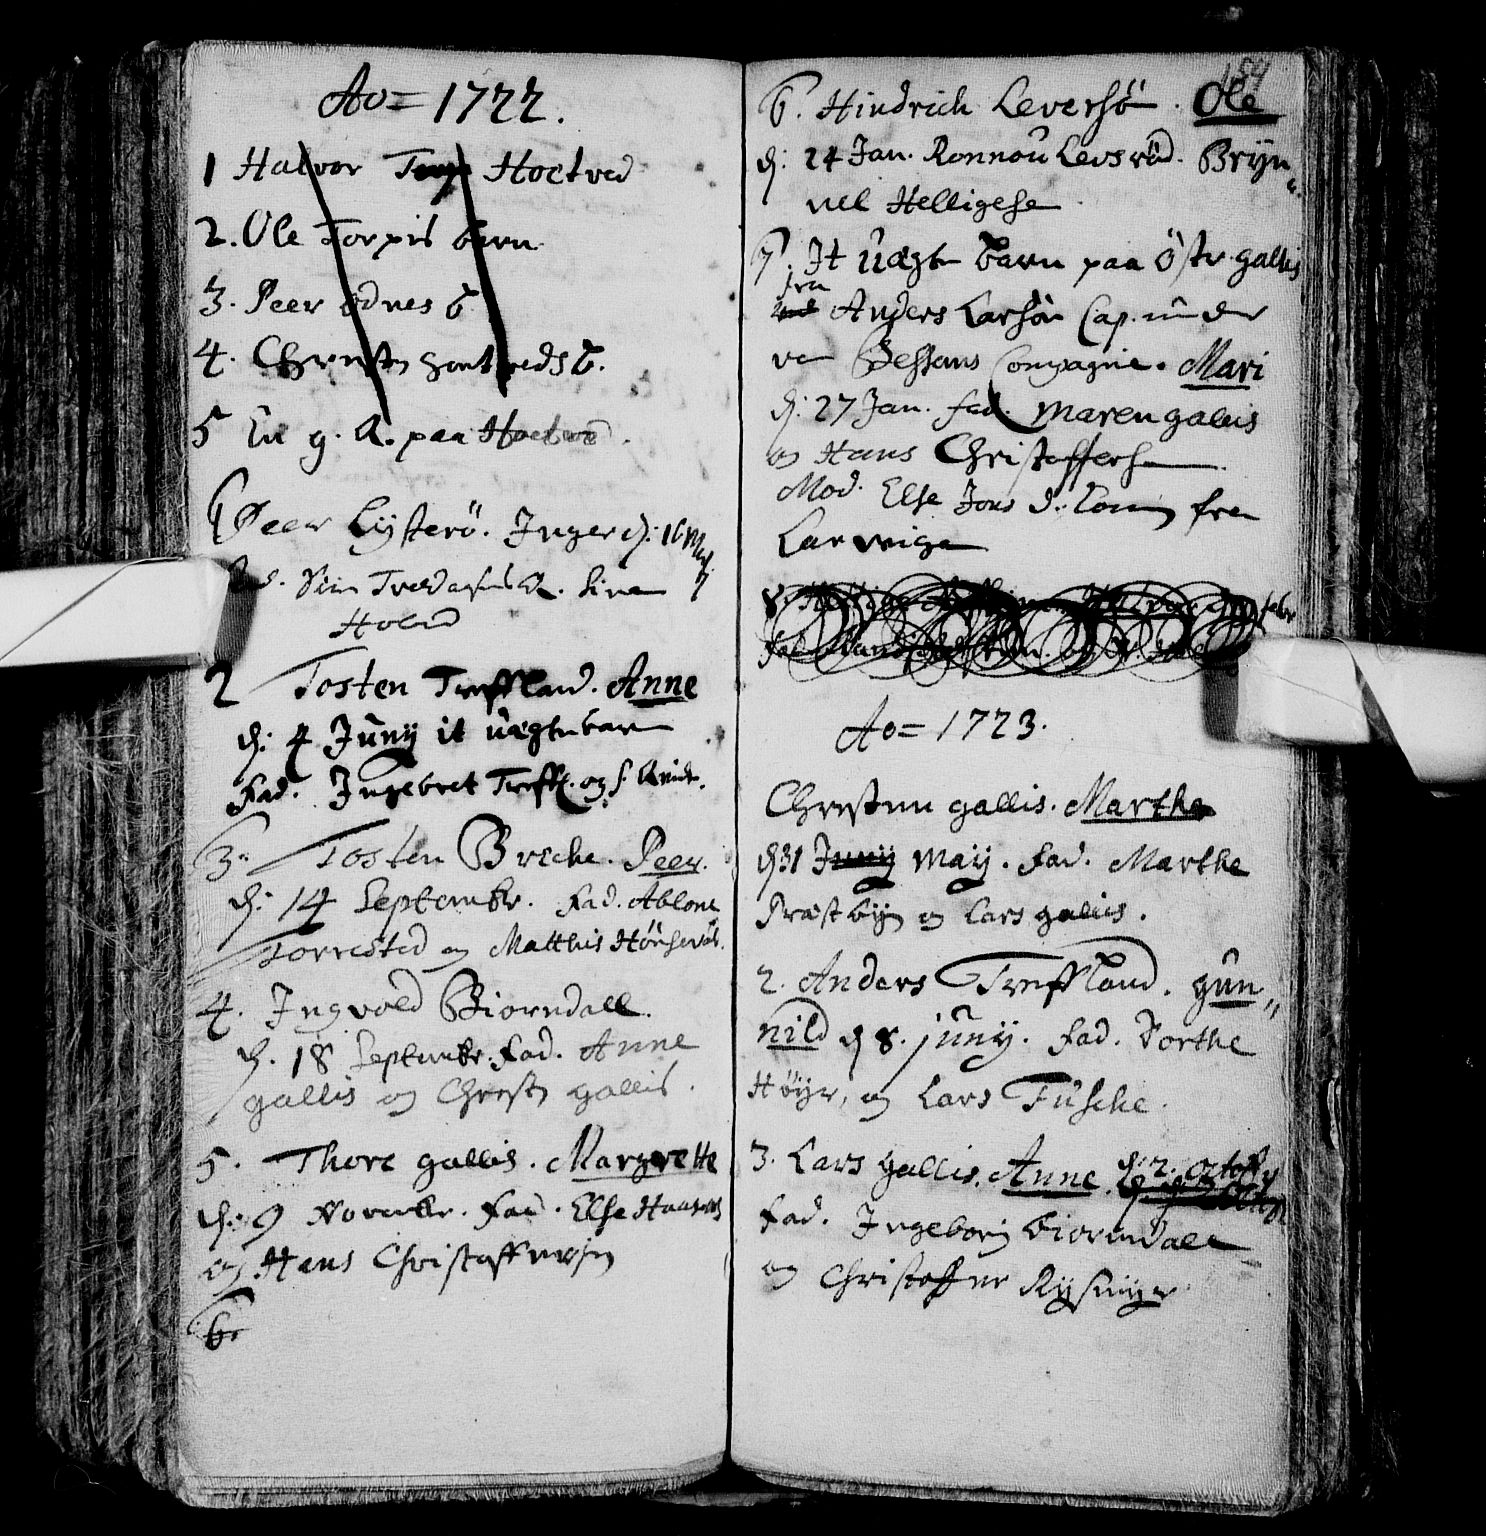 Ao = 1722.
1 Halvor Hoetved
2. Ole Torpis barn
3. Peer ødnes b
4. Christen hoetveds b.
5 En g. K. paa Hoetved.
1 Peer Lysterö. Inger d: 16 Maij
Fad. Siri Siven
Holm
2 Tosten Treffland. Anne
d: 4 Junij it uægte barn
Fad. Ingebret Treffl. og s. Qvinde.
3. Tosten Breche. Peer.
d: 14 Septembr. Fad. Ablone
Torrested og Matthis Hönserös.
4. Ingvold Biorndall.
d. 18 Septembr. Fad. Anne
gallis og Christen gallis.
5. Thore gallis. Margrette
d: 9 Novembr. Fad. Else Haasens
og Hans Christoffersen
6.
154
6. Hindrich Leversö. Ole
d: 24 Jan. Ronnou Levsröd. Bryn„
nel Helligese
7. It uægte barn paa Östr gallis
fra
Anders Larsön Cap. under
Bessons Compagnie. Mari
d: 27 Jan. fad. Maren gallis
og Hans Christoffersen
Mod. Else Jons d: kom fra
Larwigen
8.
Ao = 1723.
Christen gallis. Marthe
d 31 Junij Maij. Fad. Marthe
Præstbyn og Lars gallis.
2. Anders Treffland. gun„
nild d 8. junij. Fad. Dorthe
Høyr, og Lars Fusche.
3. Lars gallis. Anne. d: 2. Octob
Fad. Ingeborg biorndall
og Christoffer Rysniyr